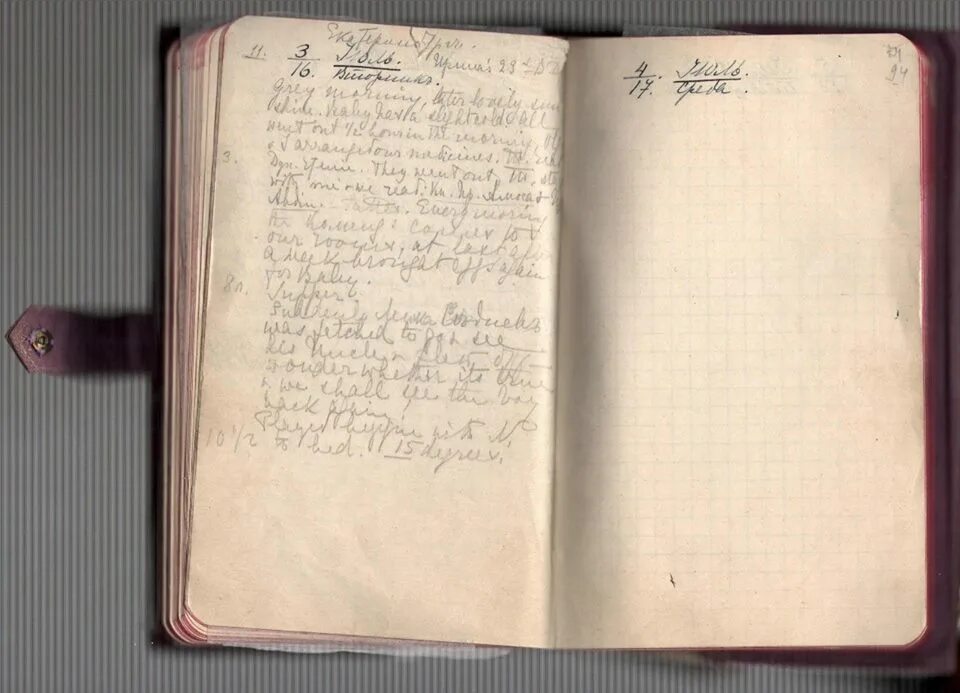 Екатеринбург.
11. 3 Июль. Ирина's 23rd B.D.
16. Вторникъ.
Grey morning, later lovely sun
shine. Baby has a slight cold. All
went out ½ hour in the morning, Ol
& I arranged our medicines. T. read
3. Дух. чтен. They went out, T. stay
with me & we read: Кн. Пр. Амоса &
Авдия. Tatted. Every morning
the Komend: comes to
our rooms, at last after
a week brought eggs again
for Baby.
8h. Supper.
Suddenly Ленка Седневъ
was fetched to go & see
his Uncle & flew off
wonder whether its true
& we shall see the boy
back again!
Played bezique with N.
10½ to bed. 15 degrees.
4 Июль.
17. Среда.
94